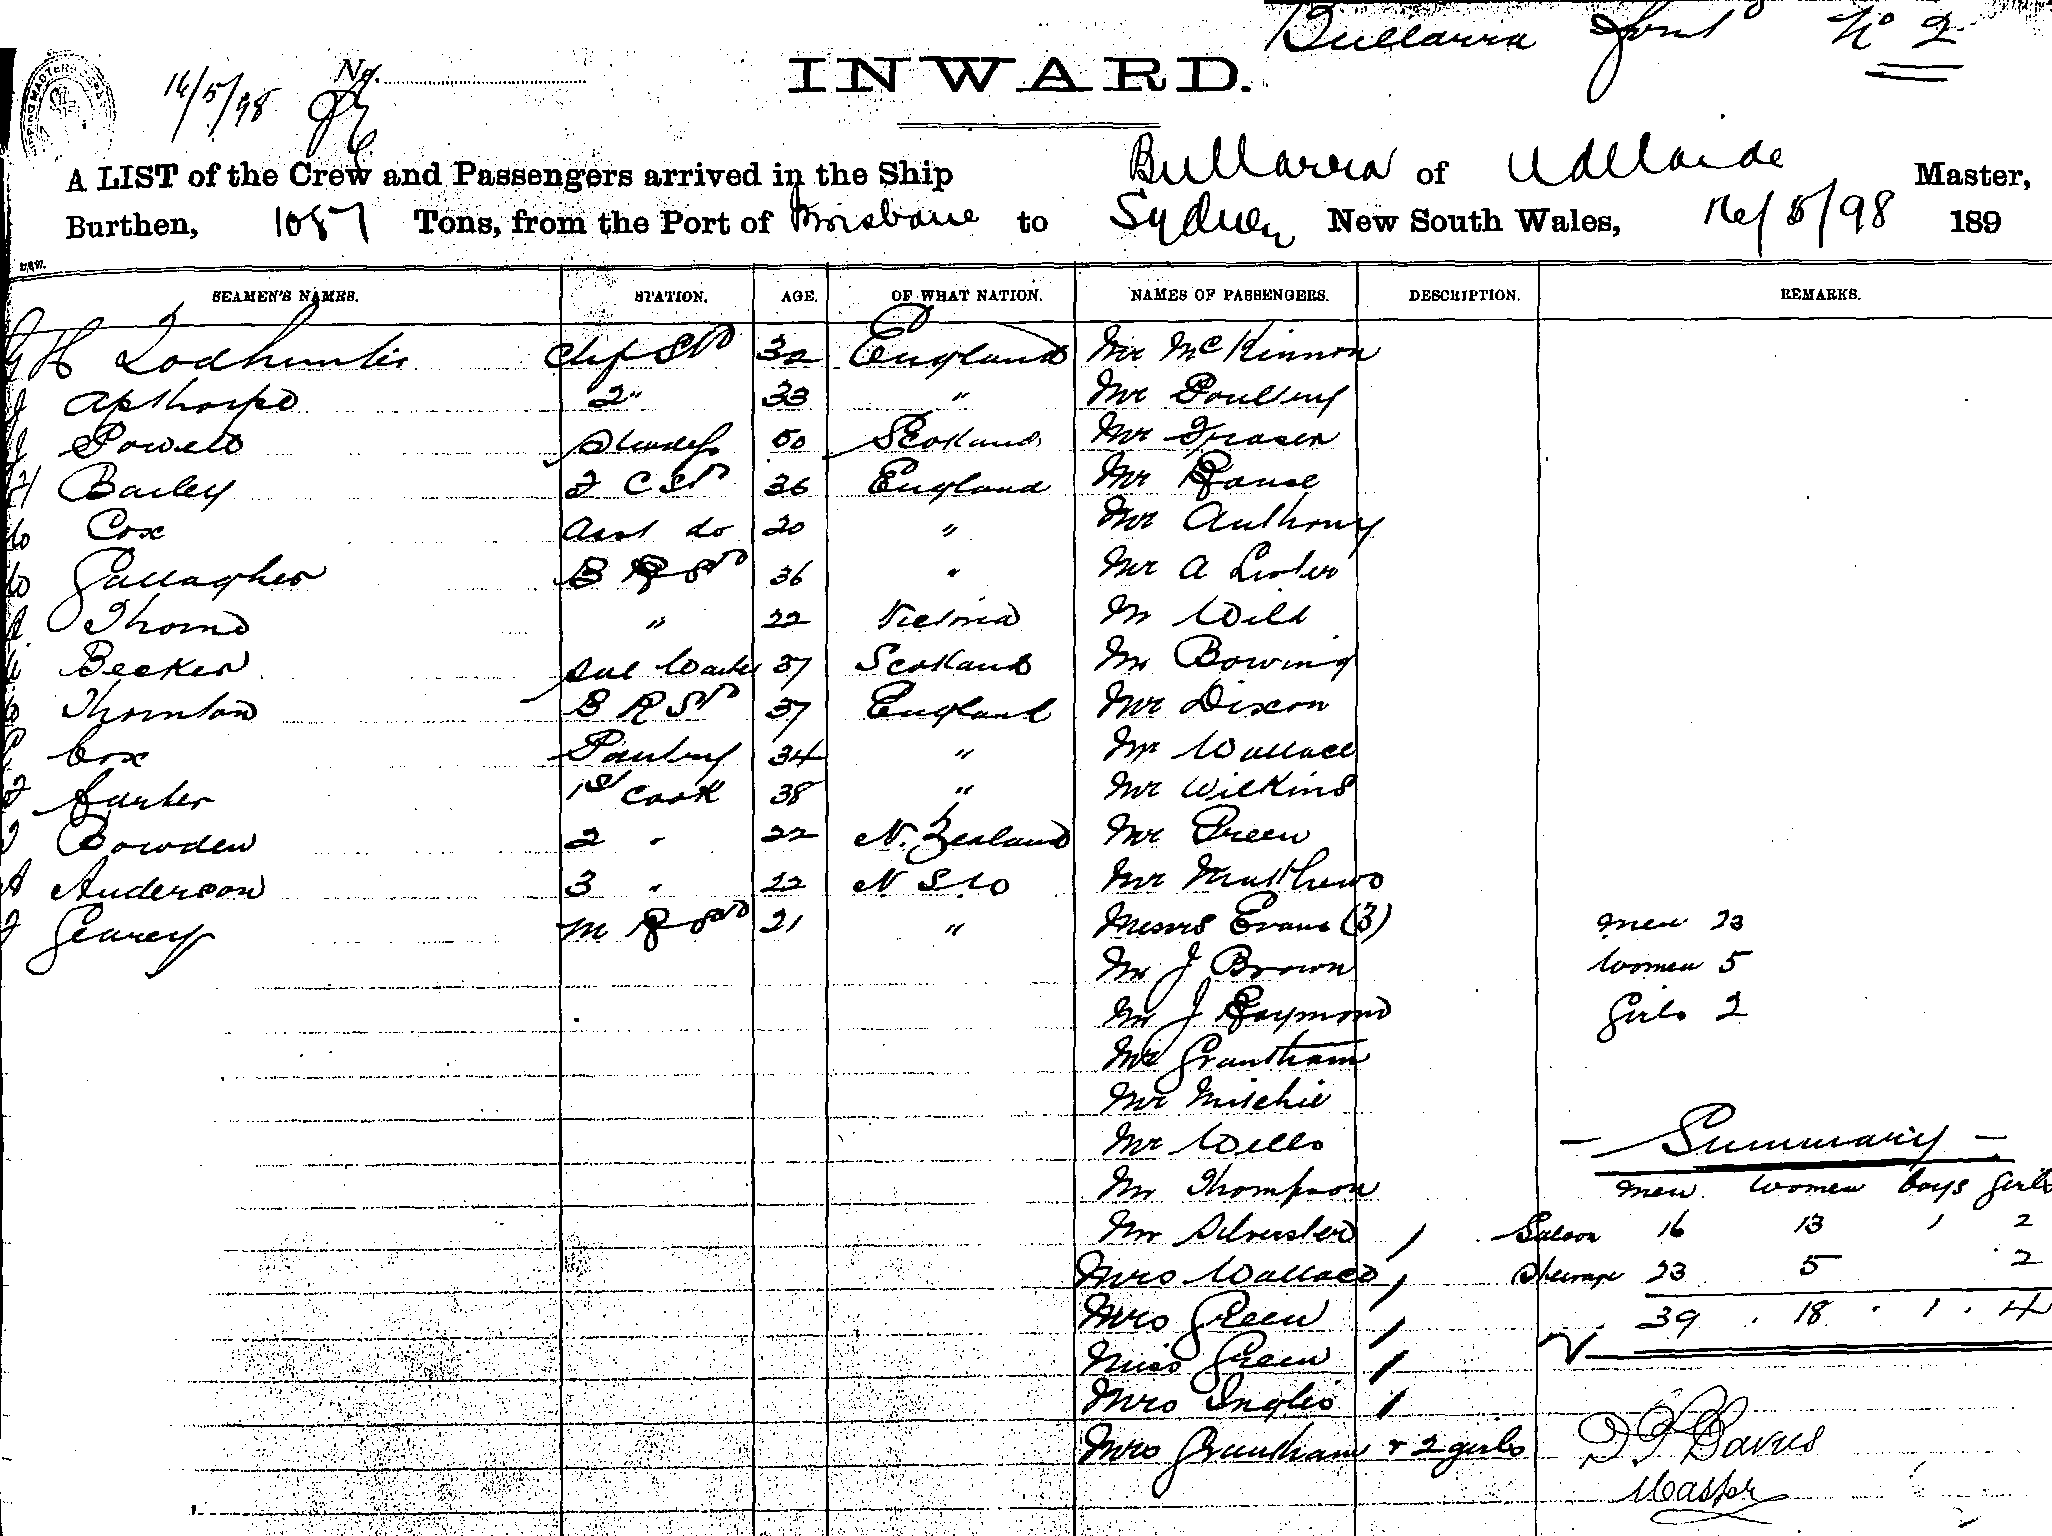 Bullarra No 2
16/5/98 No.
INWARD.
A LIST of the Crew and Passengers arrived in the Ship Bullarra of Adelaide Master,
Burthen, 1087 Tons, from the Port of Brisbane to Sydney New South Wales, 16/5/98 189
SEAMEN'S NAMES. STATION. AGE. OF WHAT NATION. NAMES OF PASSENGERS. DESCRIPTION. REMARKS.
H Todhunter Chf Std 32 England Mr McKinnon
J Apthorpe 2" 33 " Mr Poultney
J Powell 50 Scotland Mr Fraser
H Bailey F C Std 36 England Mr Rouse
W Cox Asst do 20 " Mr Anthony
W Gallagher B R Std 36 " Mr A Lister
A Thorne " 22 Victoria Mr Wild
Becker 37 Scotland Mr Bowing
Thornton B R Std 37 England Mr Dixon
Cox Pantry 34 " Mr Wallace
F 1st Cook 38 " Mr Wilkins
Bowden 2 " 22 N. Zealand Mr Green
A Anderson 3 " 22 N S W Mr Matthews
F Gearey M R Std 21 " Messrs Evans (3) men 23
Mr J Brown Women 5
Mr J Raymond Girls 2
Mr Grantham
Mr Mitchie
Mr Wills
Mr Thompson
Mr Silvester
Mrs Wallace
Mrs Green
Miss Green
Mrs Inglis
Mrs Grantham + 2 girls
- Summary -
men women boys girls
Saloon 16 13 1 2
Steerage 23 5 2
39 . 18 . 1 . 4
Davies
Master